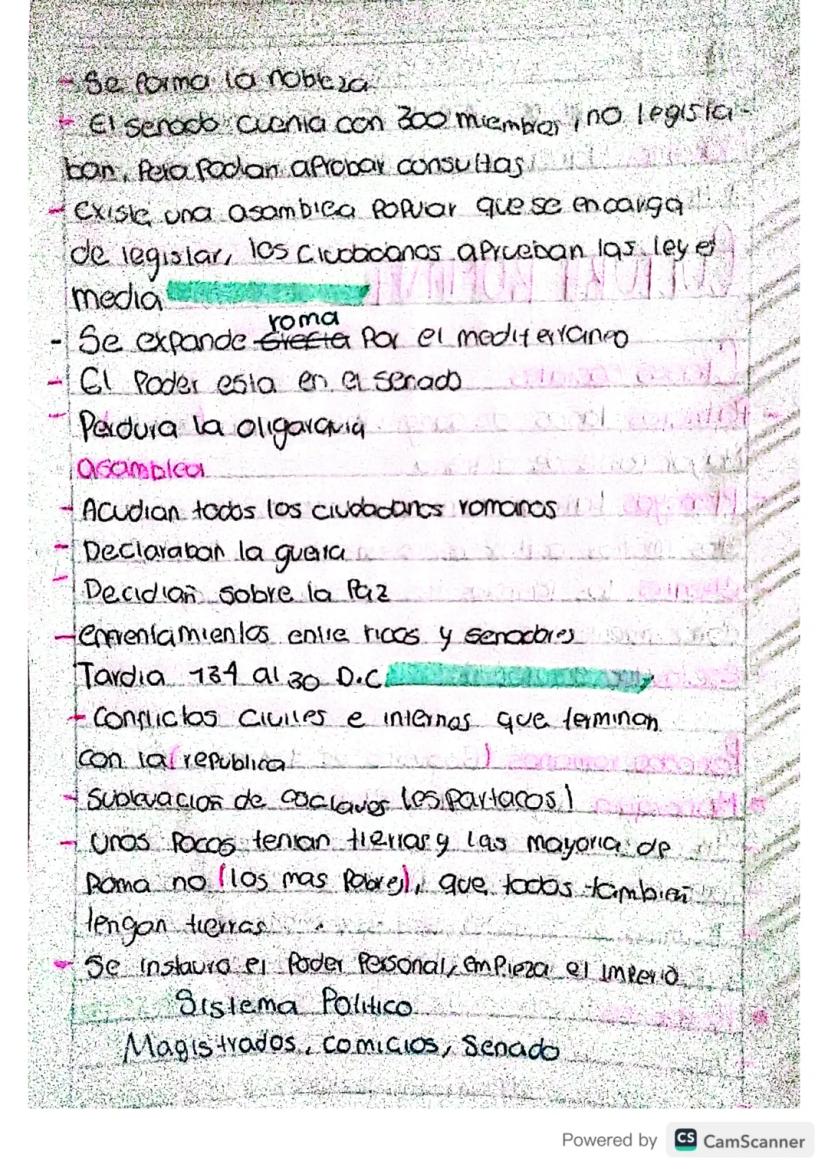 - Se forma la nobleza
- El senado cuenta con 300 miembros, no legisla-
ban, Pero Podian aprobar consultas
- existe una asamblea Popular que se encarga
de legislar, los ciudadanos aprueban las leyes
media
roma
- Se expande Grecia Por el mediterraneo
- El Poder esta en el senado
- Perdura la oligarquia
asamblea
- Acudian todos los ciudadanos romanos
- Declaraban la guerra
- Decidian sobre la Paz
- enfrentamientos entre ricos y senadores
Tardia 134 al 30 D.C
- Conflictos civiles e internos que terminan
con la (republica )
- Sublevación de esclavos (espartacos)
- unos Pocos tenian tierras y las mayoria de
Roma no (los mas Pobres), que todos tambien
tengan tierras.
- Se instaura el Poder Personal, empieza el imperio
Sistema Politico
Magistrados, comicios, Senado
Powered by CS CamScanner